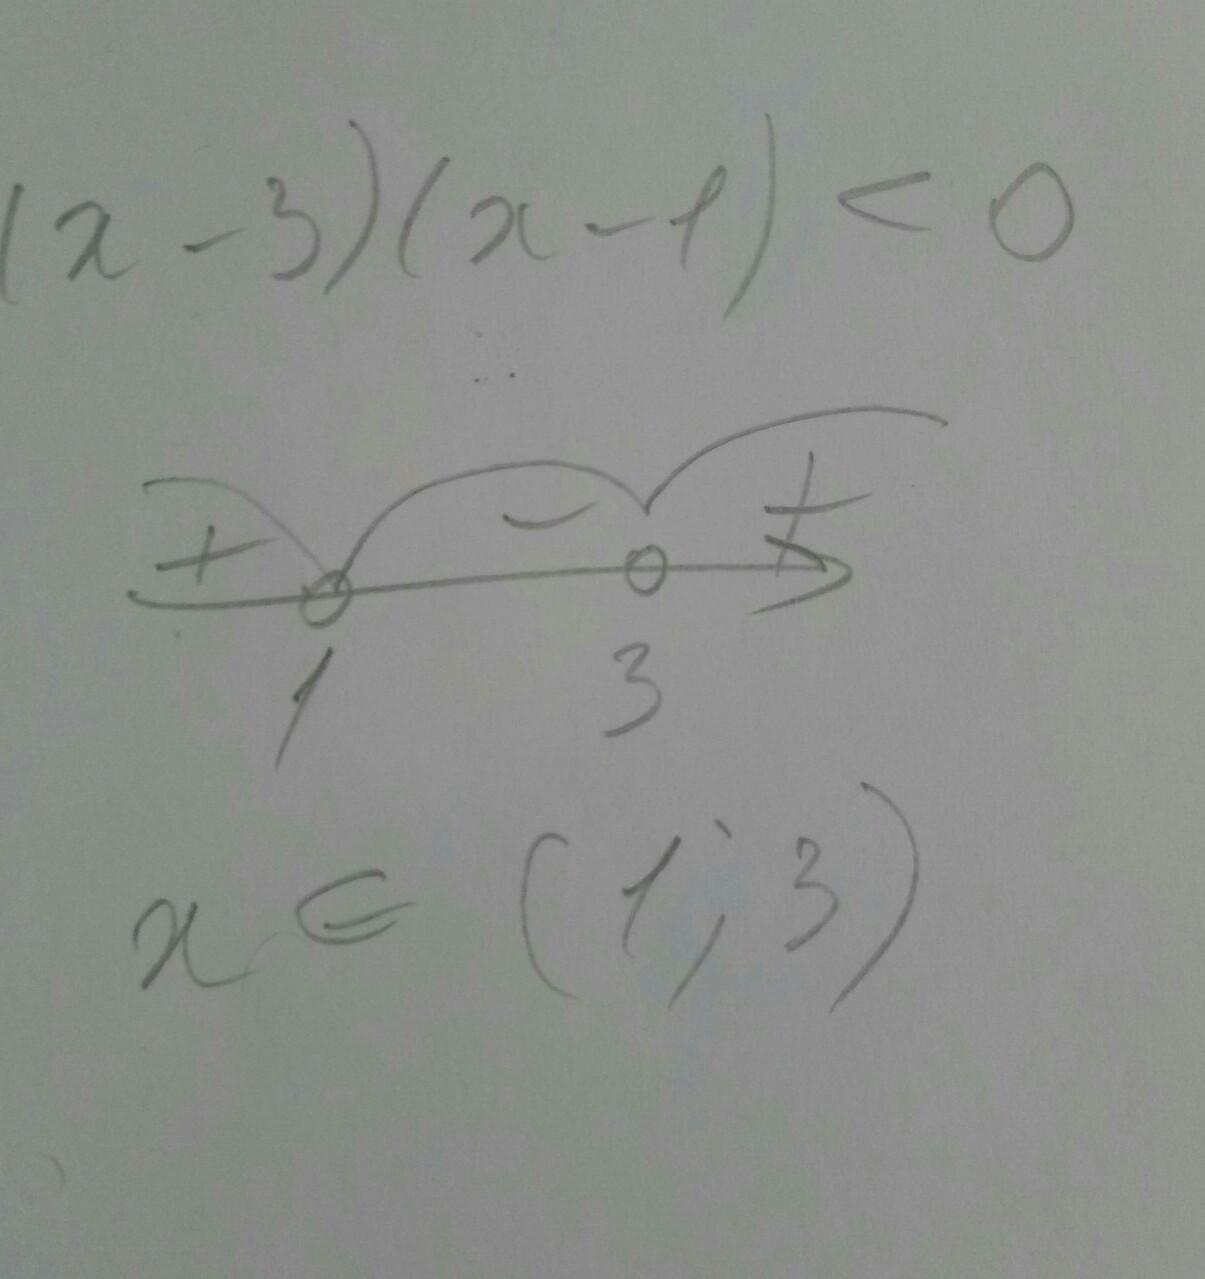 (x-3)(x-1) < 0
+ - +
1 3
x ∈ (1; 3)